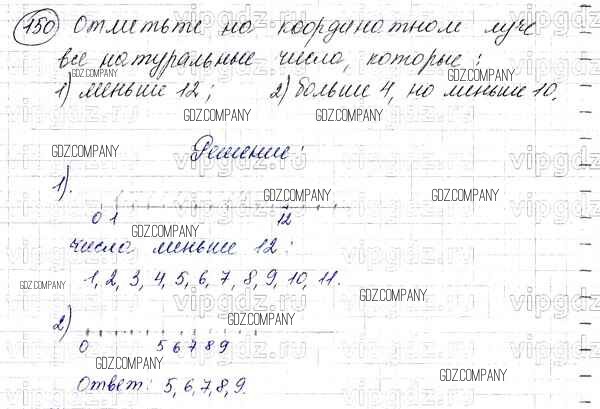 150 Отметьте на координатном луче
все натуральные числа, которые:
GDZ.COMPANY
GDZ.COMPANY
1) меньше 12; 2) больше 4, но меньше 10.
GDZ.COMPANY GDZ.COMPANY
vipgdz.ru vipgdz.ru
GDZ.COMPANY Решение:
1).
GDZ.COMPANY GDZ.COMPANY
0 1 12
GDZ.COMPANY
числа меньше 12:
1, 2, 3, 4, 5, 6, 7, 8, 9, 10, 11.
GDZ.COMPANY
GDZ.COMPANY
vipgdz.ru vipgdz.ru
2)
GDZ.COMPANY
0 5 6 7 8 9
GDZ.COMPANY
GDZ.COMPANY
Ответ: 5, 6, 7, 8, 9.